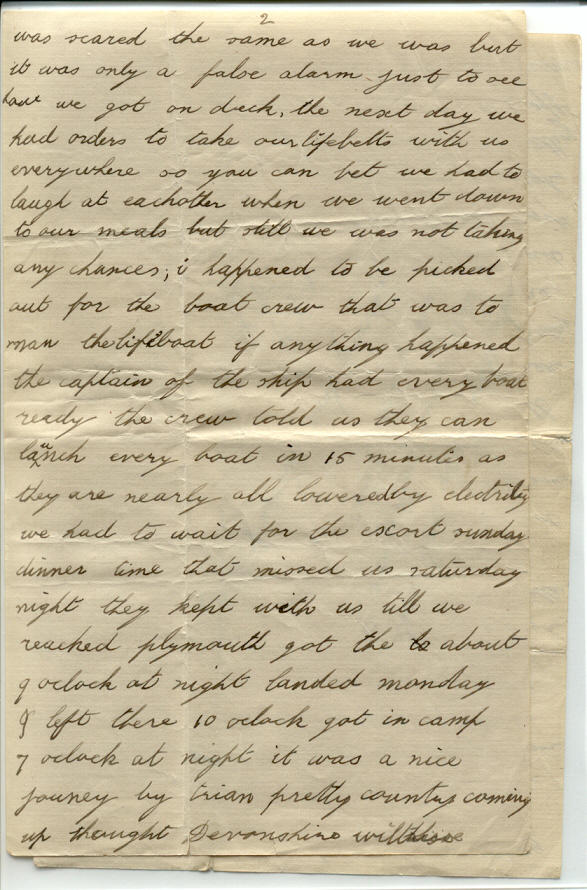 2
was scared the same as we was but
it was only a false alarm just to see
how we got on deck, the next day we
had orders to take our lifebelts with us
everywhere so you can bet we had to
laugh at eachother when we went down
to our meals but still we was not taking
any chances, i happened to be picked
out for the boat crew that was to
man the lifeboat if anything happened
the captain of the ship had every boat
ready the crew told us they can
launch every boat in 15 minutes as
they are nearly all lowered by electricity
we had to wait for the escort sunday
dinner time that missed us saturday
night they kept with us till we
reached plymouth got the about
9 oclock at night landed monday
left there 10 oclock got in camp
7 oclock at night it was a nice
jouney by trian pretty country coming
up thought Devonshire